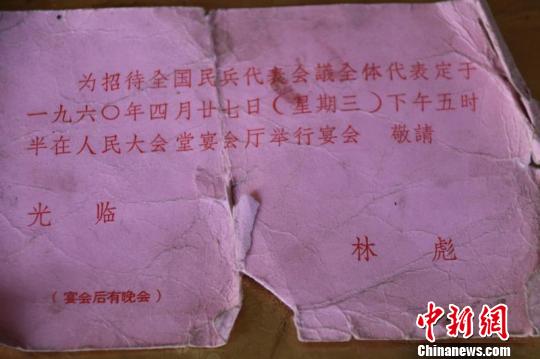 为招待全国民兵代表会議全体代表定于
一九六〇年四月廿七日(星期三)下午五时
半在人民大会堂宴会厅举行宴会 敬請
光临
林彪
(宴会后有晚会)
中新网
Chinanews.com